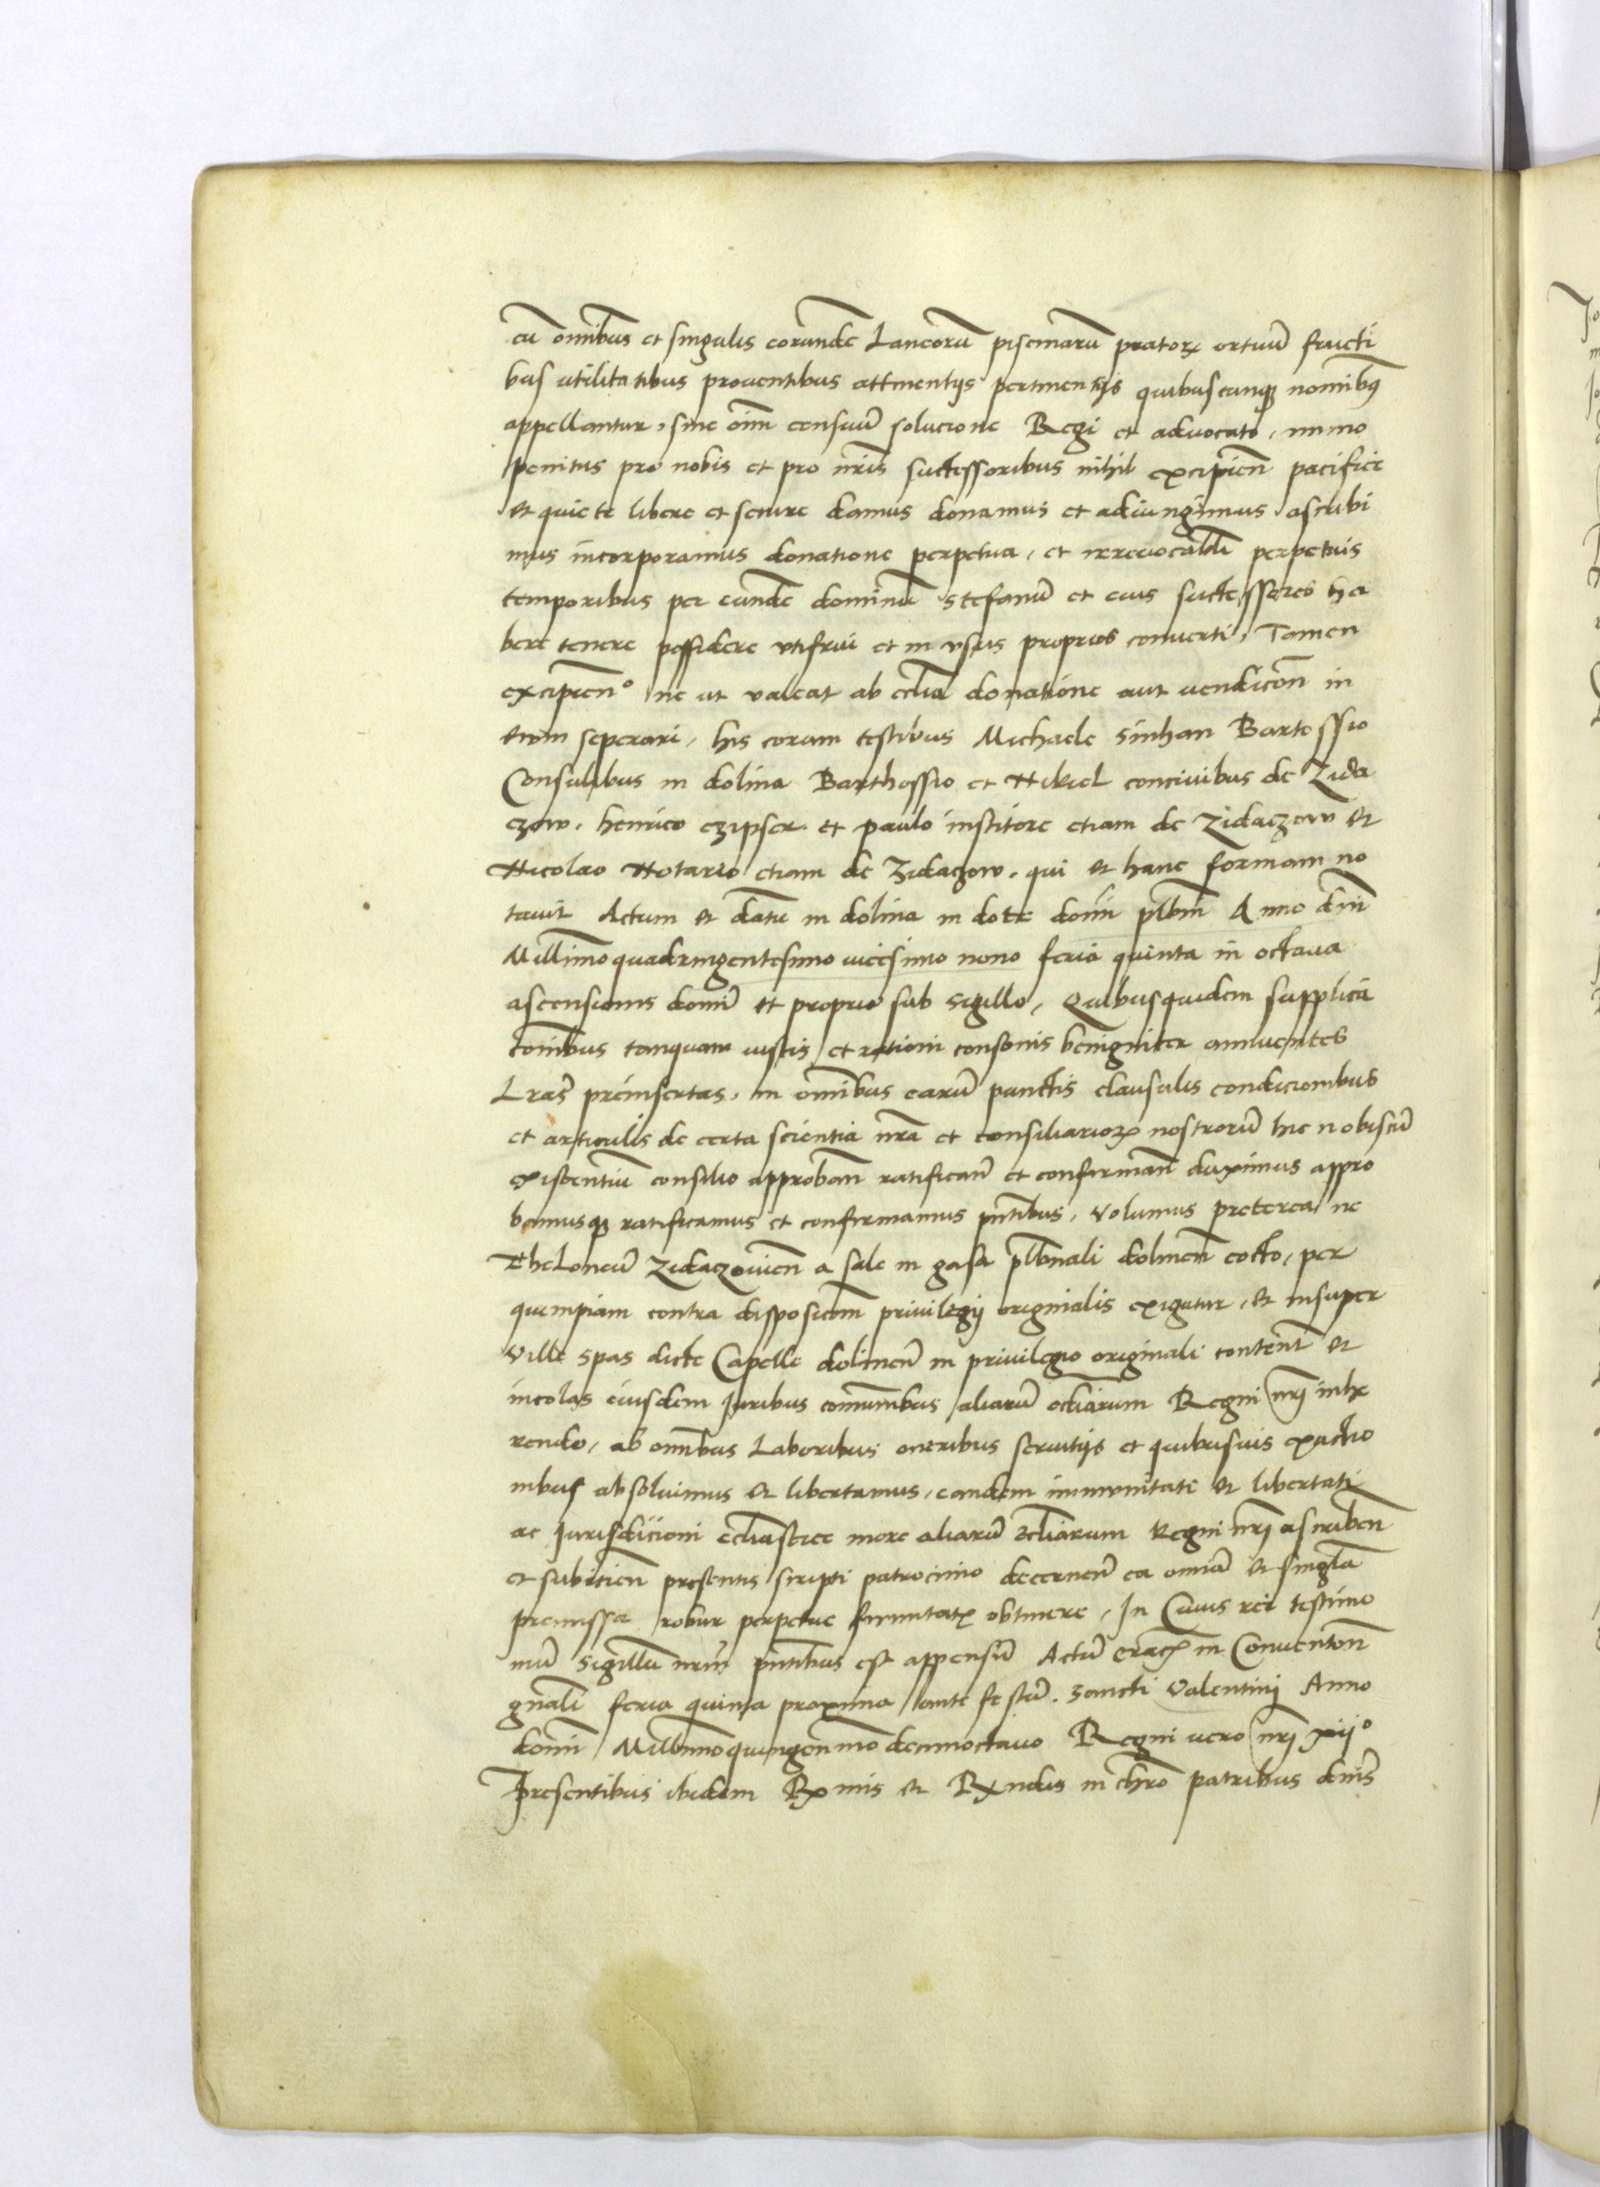 cu omnibus et singulis eorunde Laneoru piscinaru prator ortuu fructi
bus utilitatibus proventibus attinentijs pertinentijs quibuscunq nominibq
appellantur, sine omi censuu solucione Regi et advocato, immo
penitus pro nobis et pro nris successoribus nihil excipien pacifice
et quiete libere et secure damus donamus et adiungimus ascribi
mus incorporamus donatione perpetua, et irrevocabili perpetuis
temporibus per eunde dominu Stefanu et eius successores ha
bere tenere possidere utifrui et in usus proprios converti, Tamen
excipien° ne ut valeat ab eclia donatione aut vendicon in
evum seperari, his coram testibus Michaele Sinhan Bartossio
Consulibus in dolina Barthossio et Nikiel concivibus de Zida
czow. henrico czipser et paulo institore etiam de Zidaczow et
Nicolao Notario etiam de Zidaczow. qui et hanc formam no
tavit Actum et datu in dolina in dote domi plbni Anno dni
Millimoquadringentesimo vicesimo nono feria quinta in octava
ascensionis domi et proprio sub sigillo, Quibusquidem supplica
tonibus tanquam iustis et rationi consonis benigniter annuentes
Lras preinsertas, in omnibus earu punctis clausulis condicionibus
et articulis de certa scientia nra et consiliarior nostroru hic nobiscu
existentiu consilio approban ratifican et confirman duximus appro
bamusq ratificamus et confirmamus pntibus, Volumus preterea ne
TheLoneu Zidaczovien a sale in gasa plbnali dolinen cocto, per
quempiam contra disposicom privilegij originalis exigatur, et insuper
Ville Spas dicte Capelle dolinen in privilegio originali content et
incolas eiusdem Juribus comunibus aliaru ecliarum Regni nri inhe
rendo, ab omnibus Laboribus oneribus servitijs et quibusvis exactio
nibus absolvimus et libertamus, eandem immunitati et libertati
ac Jurisdicioni ecliastice more aliaru ecliarum Regni nri ascriben
et subicien presentis scripti patrocinio decernen ea omia et singla
premissa robur perpetue firmitatis obtinere, In Cuius rei testimo
niu Sigillu nrm pntibus est appensu Actu Crac in Conventon
gnali feria quinta proxima ante festu Sancti Valentini Anno
domi Millimoquingenmo decimoctavo Regni vero nri xij°
Presentibus ibidem Rx mis et Rx ndis in chro patribus dnis